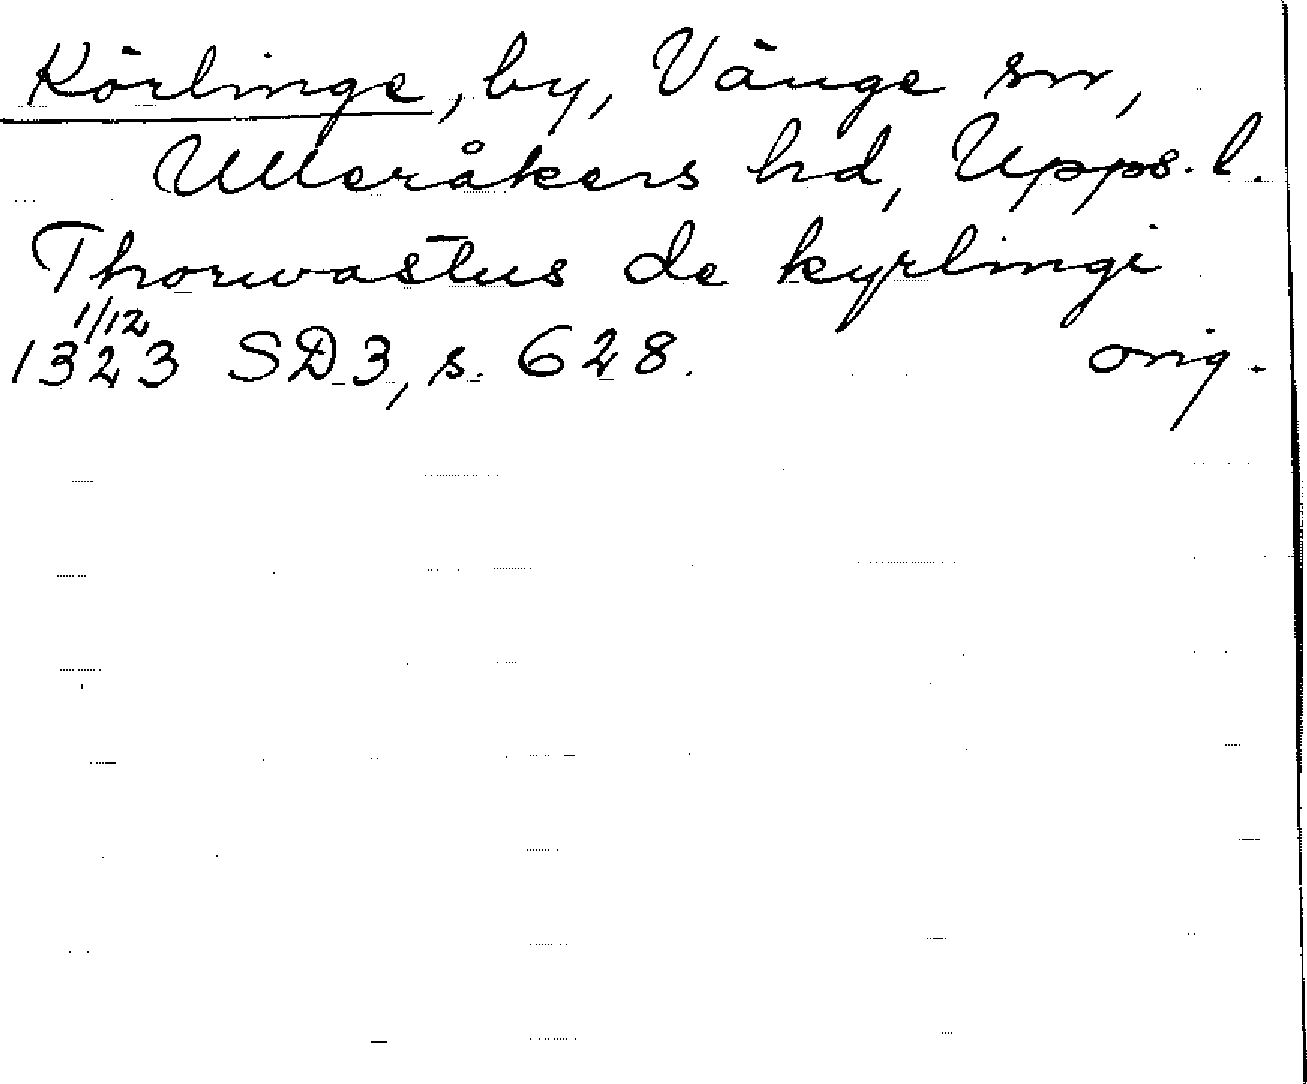 Körlinge, by, Vänge sn,
Ulleråkers hd, Upps. l.
Thorwastus de kyrlingi
1/12
1323 SD 3, s. 628. orig.